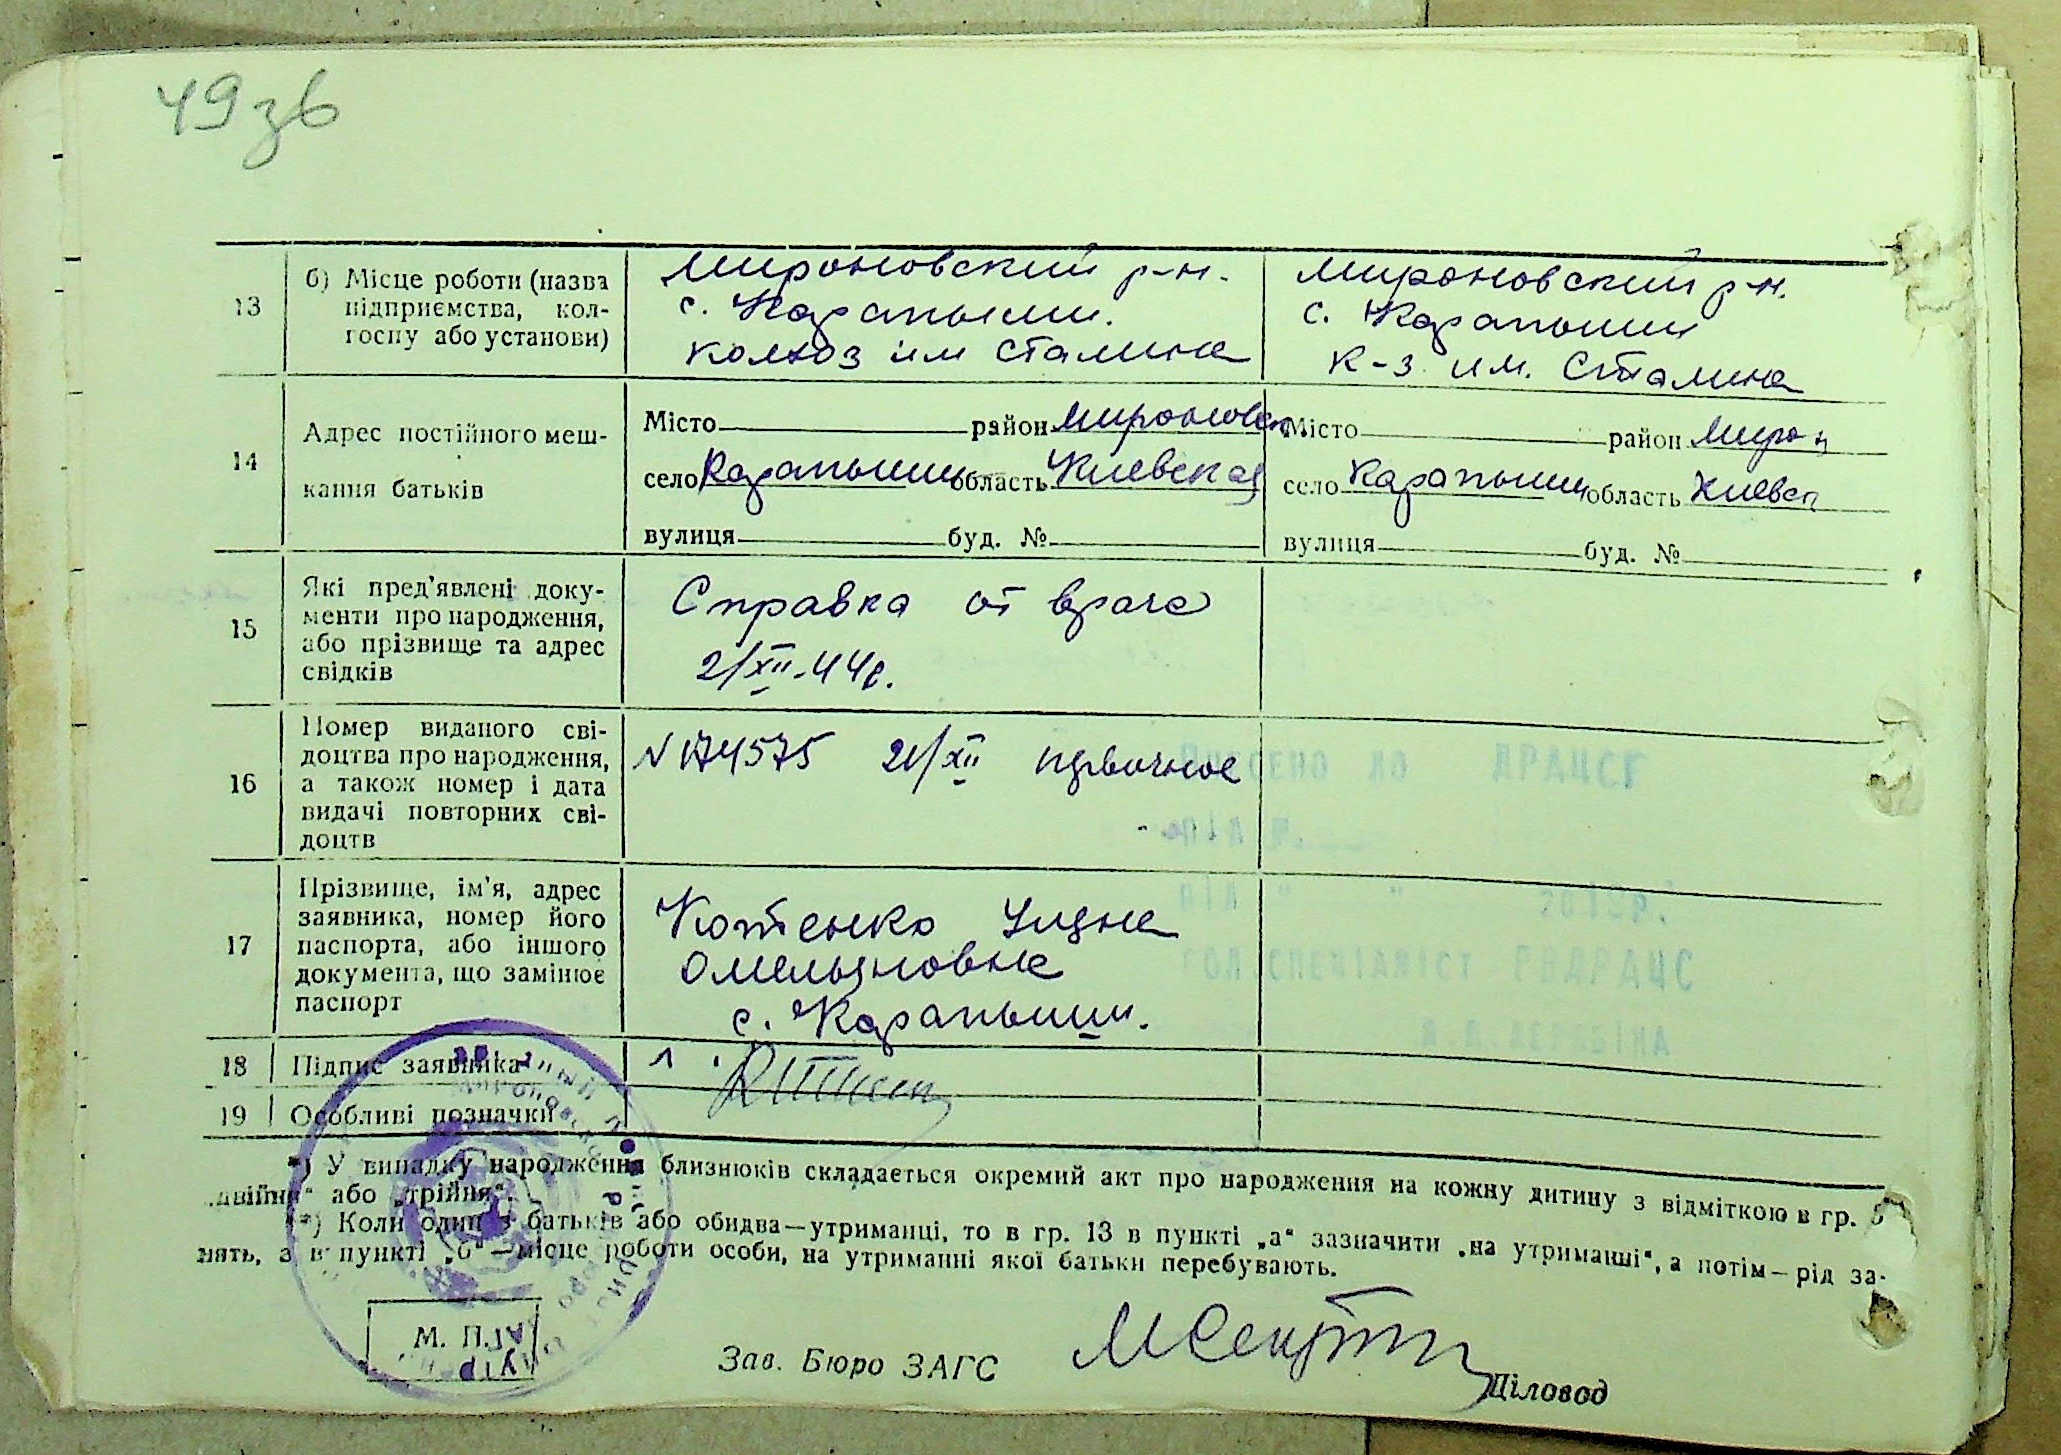 49зв
13
б) Місце роботи (назва
підприємства, кол-
госпу або установи)
Мироновский р-н.
с. Карапыши.
колхоз им Сталина
Мироновский р-н.
с. Карапыши
к-з им. Сталина
14
Адрес постійного меш-
кання батьків
Місто район Мироновск
село Карапыши область Киевская
вулиця буд. №
Місто район Мирон
село Карапыши область Киевск
вулиця буд. №
15
Які пред'явлені доку-
менти про народження,
або прізвище та адрес
свідків
Справка от врача
21/XII-44г.
16
Номер виданого сві-
доцтва про народження,
а також номер і дата
видачі повторних сві-
доцтв
N 174575 21/XII первичное
17
Прізвище, ім'я, адрес
заявника, номер його
паспорта, або іншого
документа, що замінює
паспорт
Котенко
Омельяновна
с. Карапыши.
18
Підпис заявника
19
Особливі позначки
*) У випадку народження близнюків складається окремий акт про народження на кожну дитину з відміткою в гр. 5
„двійня" або „трійня".
**) Коли один з батьків або обидва—утриманці, то в гр. 13 в пункті „а" зазначити „на утриманні", а потім—рід за-
нять, а в пункті „б"—місце роботи особи, на утриманні якої батьки перебувають.
М. П.
Зав. Бюро ЗАГС
Діловод